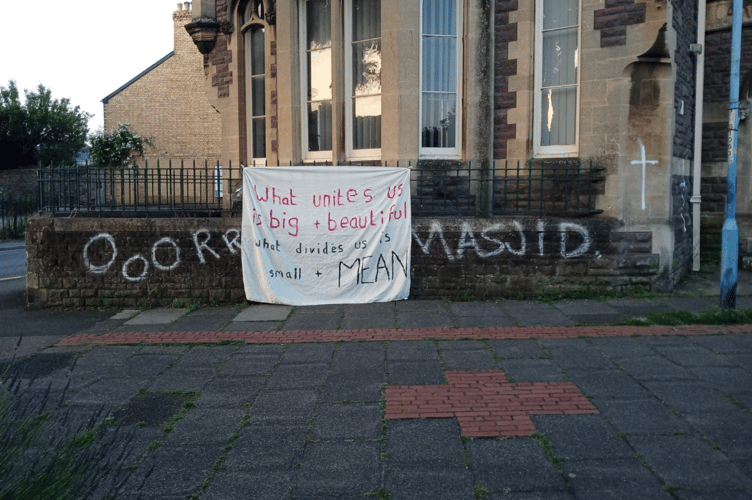 What unites us
is big + beautiful
what divides us is
small + MEAN
OOORR
MASJID.